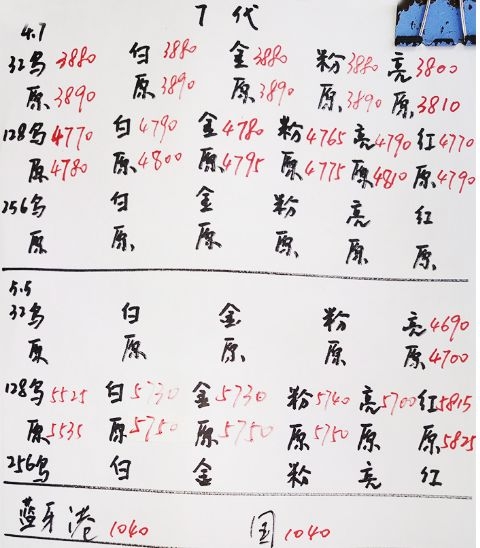 7代
4.7
32乌 3880 白 3880 金 3880 粉 3880 亮 3800
原 3890 原 3890 原 3890 原 3890 原 3810
128乌 4770 白 4790 金 4780 粉 4765 亮 4790 红 4770
原 4780 原 4800 原 4795 原 4775 原 4810 原 4790
256乌 白 金 粉 亮 红
原 原 原 原 原 原
5.5
32乌 白 金 粉 亮 4690
原 原 原 原 原 4700
128乌 5525 白 5730 金 5730 粉 5740 亮 5700 红 5815
原 5535 原 5750 原 5750 原 5750 原 原 5825
256乌 白 金 粉 亮 红
蓝牙 港 1040 国 1040